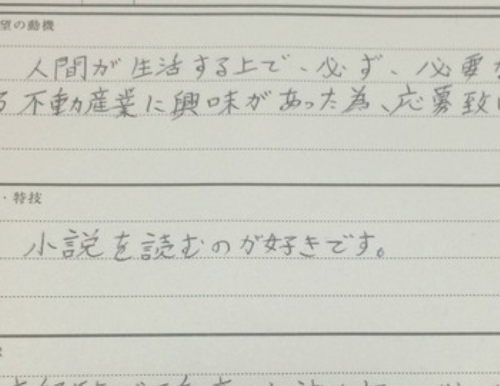 望の動機
人間が生活する上で、必ず、必要
不動産業に興味があった為、応募致
・特技
小説を読むのが好きです。